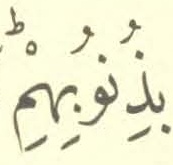 بِذُنُوْبِهِمْ ؕ